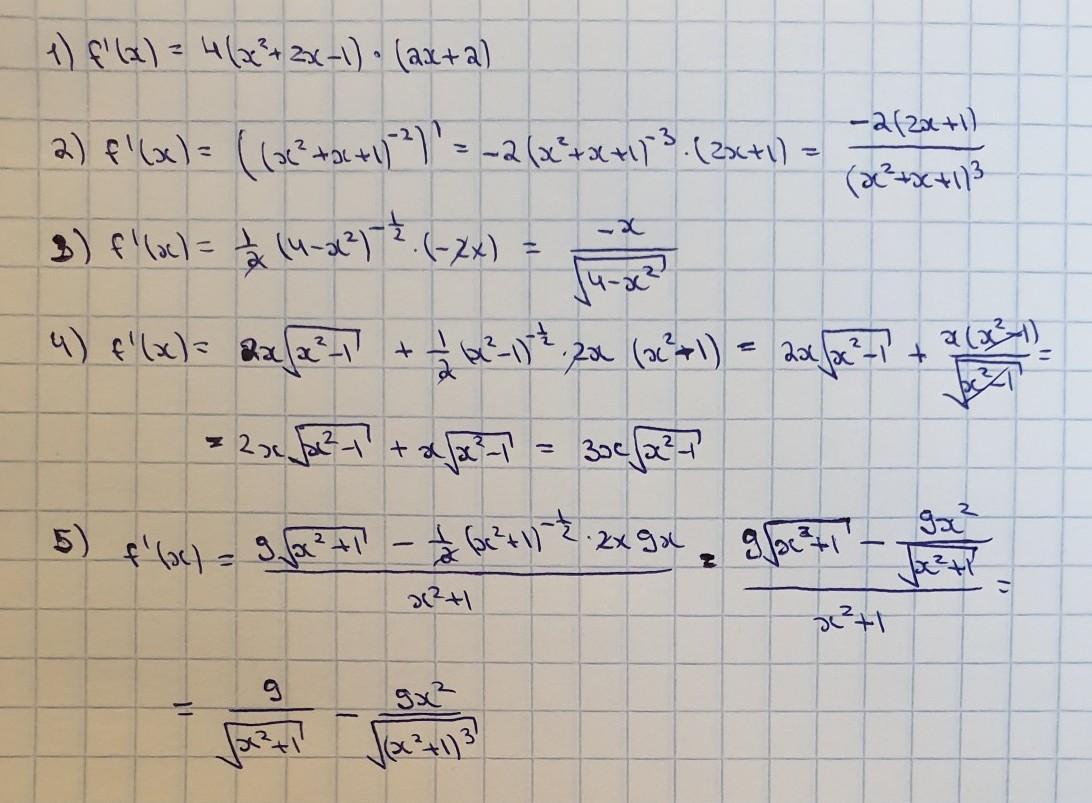 1) f'(x) = 4(x²+2x-1)·(2x+2)
2) f'(x) = ((x²+x+1)⁻²)' = -2(x²+x+1)⁻³·(2x+1) = -2(2x+1)/(x²+x+1)³
3) f'(x) = 1/2 (4-x²)^(-1/2)·(-2x) = -x/√(4-x²)
4) f'(x) = 2x√(x²-1) + 1/2 (x²-1)^(-1/2)·2x (x²-1) = 2x√(x²-1) + x(x²-1)/√(x²-1) =
= 2x√(x²-1) + x√(x²-1) = 3x√(x²-1)
5) f'(x) = (9√(x²+1) - 1/2 (x²+1)^(-1/2)·2x 9x)/(x²+1) = (9√(x²+1) - 9x²/√(x²+1))/(x²+1) =
= 9/√(x²+1) - 9x²/√((x²+1)³)